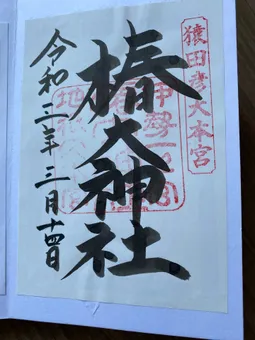 猿田彦大本宮
伊勢一
椿大神社
令和二年三月十四日